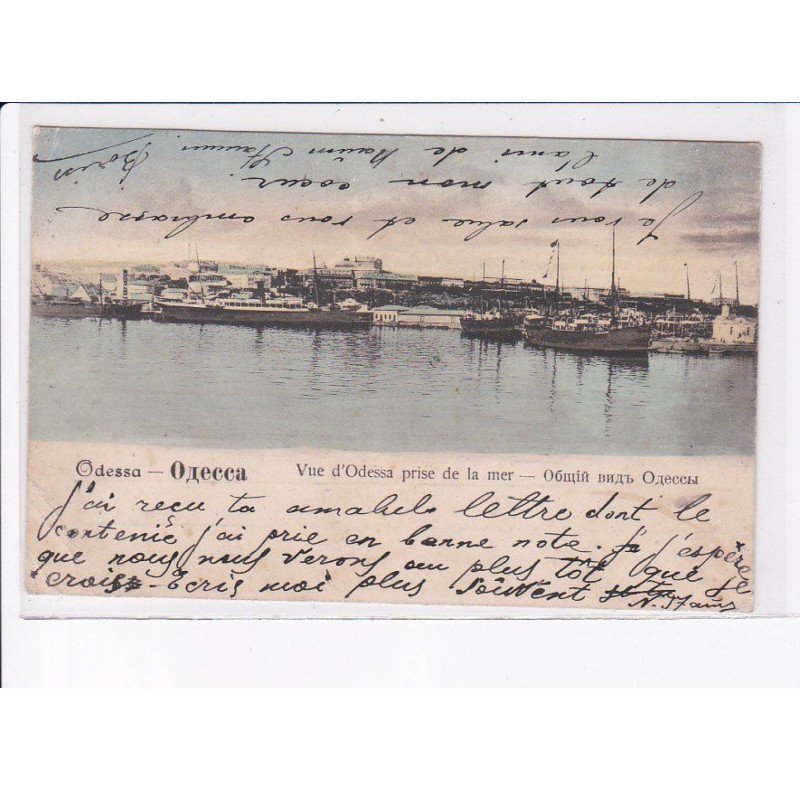 Je vous salue et vous embrasse
de tout mon coeur
l'ami de Naüm
Boris
Odessa — Одесса Vue d'Odessa prise de la mer — Общій видъ Одессы
J'ai reçu ta amabel lettre dont le
contenie j'ai prie en bonne note. J'espère
que nous nous verons au plus tôt que je
crois - Ecris moi plus souvent